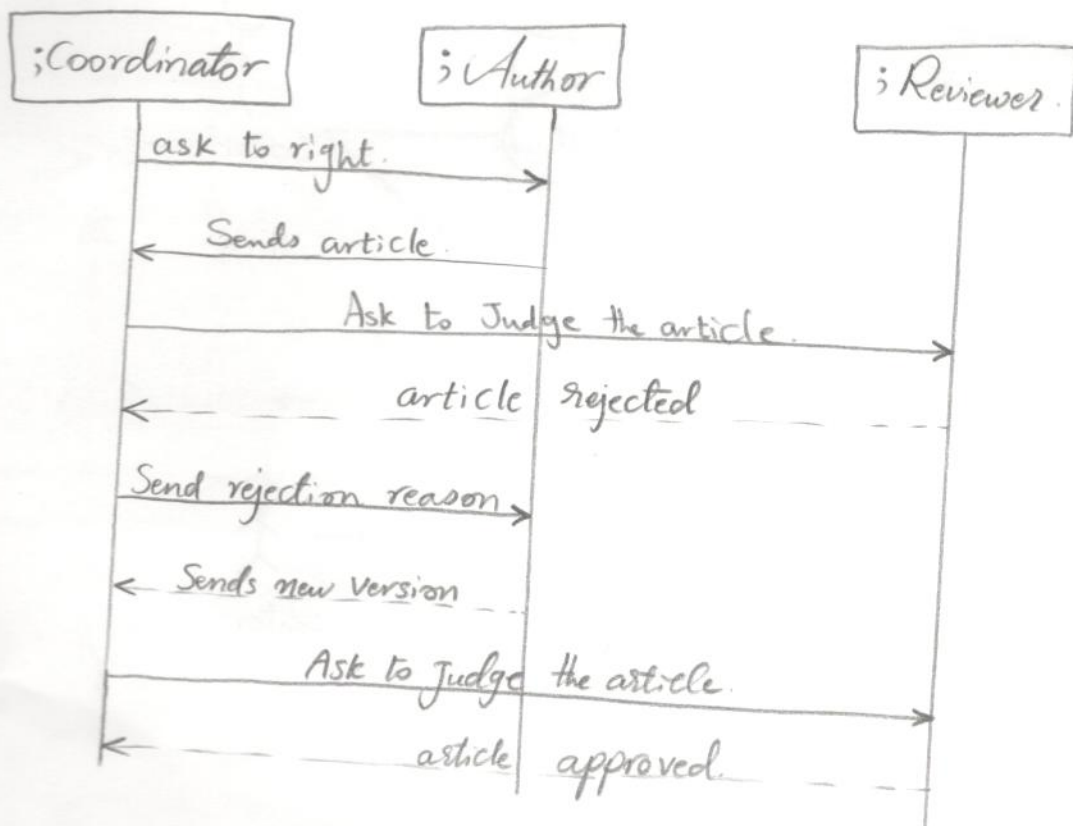 ;Coordinator
;Author
;Reviewer.
ask to right.
Sends article.
Ask to Judge the article.
article rejected
Send rejection reason
Sends new version
Ask to Judge the article.
article approved.